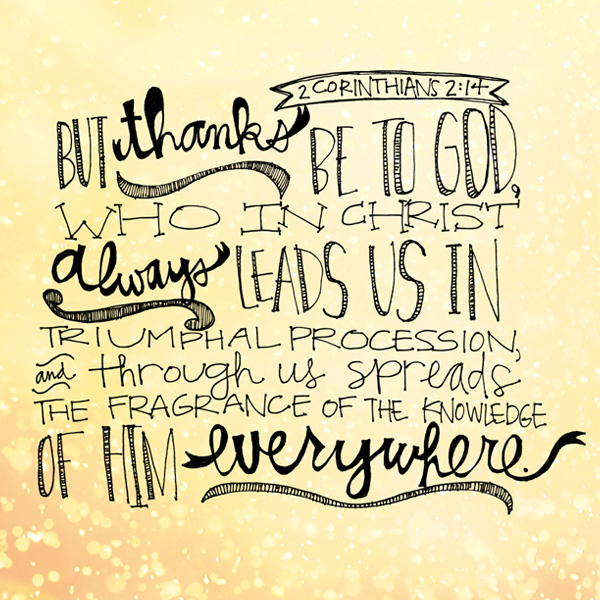 2 CORINTHIANS 2:14
BUT thanks BE TO GOD,
WHO IN CHRIST
always LEADS US IN
TRIUMPHAL PROCESSION,
and through us spreads
THE FRAGRANCE OF THE KNOWLEDGE
OF HIM everywhere.